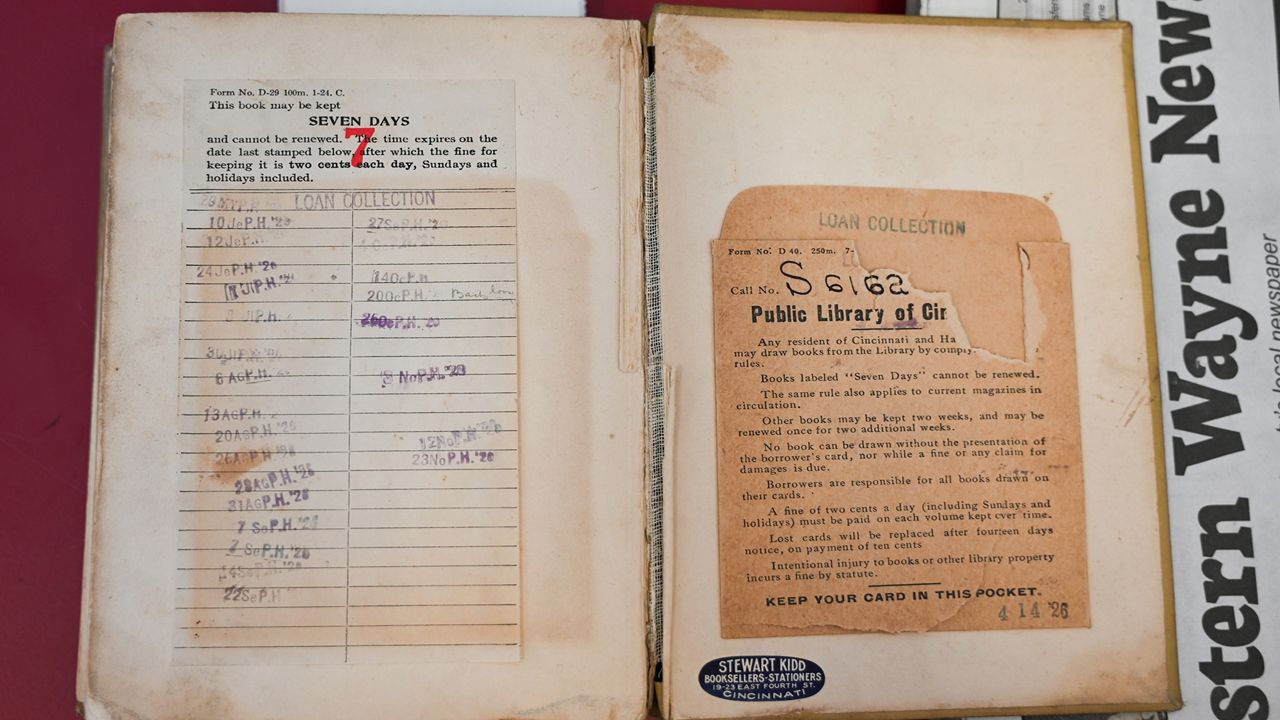 Form No. D-29 100m. 1-24. C.
This book may be kept
SEVEN DAYS
7
and cannot be renewed. The time expires on the
date last stamped below, after which the fine for
keeping it is two cents each day, Sundays and
holidays included.
LOAN COLLECTION
10JeP.H.'26
12JeP.H.
24JeP.H.'26
JlP.H.'2
JlP.H.
30JlP.H.'26
6 AGP.H.'26
13AGP.H.
20AGP.H.'26
26AGP.H.'26
28AGP.H.'26
31AGP.H.'26
7 SeP.H.'26
7 SeP.H.'26
14SeP.H.'26
22SeP.H
27SeP.H.'2
14OcP.H
20OcP.H.
26OcP.H.'26
8 NoP.H.'26
12NoP.H.'26
23NoP.H.'26
LOAN COLLECTION
Form No. D 40. 250m. 7-
Call No. S 6162
Public Library of Cin
Any resident of Cincinnati and Ha
may draw books from the Library by comply
rules.
Books labeled "Seven Days" cannot be renewed.
The same rule also applies to current magazines in
circulation.
Other books may be kept two weeks, and may be
renewed once for two additional weeks.
No book can be drawn without the presentation of
the borrower's card, nor while a fine or any claim for
damages is due.
Borrowers are responsible for all books drawn on
their cards.
A fine of two cents a day (including Sundays and
holidays) must be paid on each volume kept over time.
Lost cards will be replaced after fourteen days
notice, on payment of ten cents
Intentional injury to books or other library property
incurs a fine by statute.
KEEP YOUR CARD IN THIS POCKET.
4 14 '26
STEWART KIDD
BOOKSELLERS-STATIONERS
19-23 EAST FOURTH ST.
CINCINNATI
stern Wayne News
local newspaper